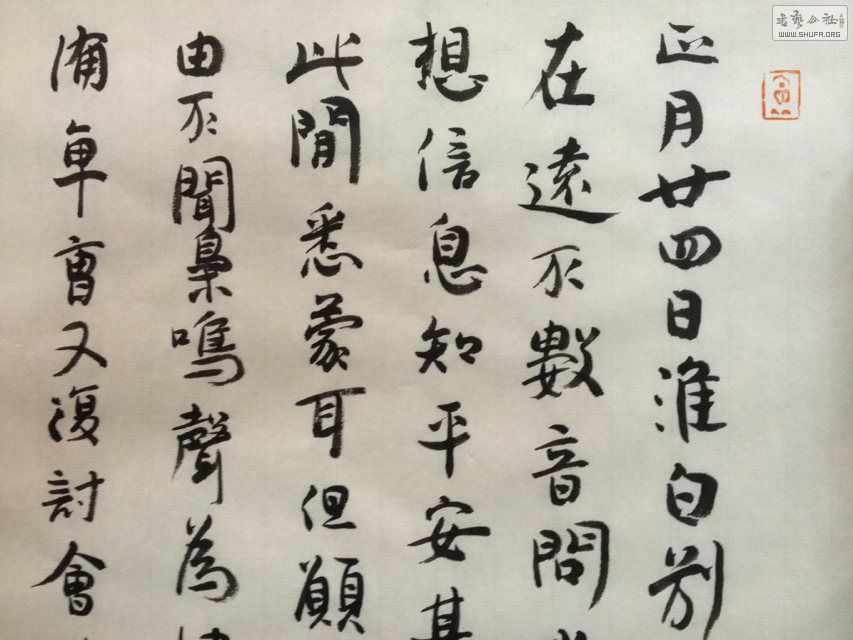 正月廿四日淮白别
在遠不數音問
想信息知平安甚
此閒悉蒙耳但願
由不聞梟鳴聲為
車曺又復討會
書藝公社
WWW.SHUFA.ORG